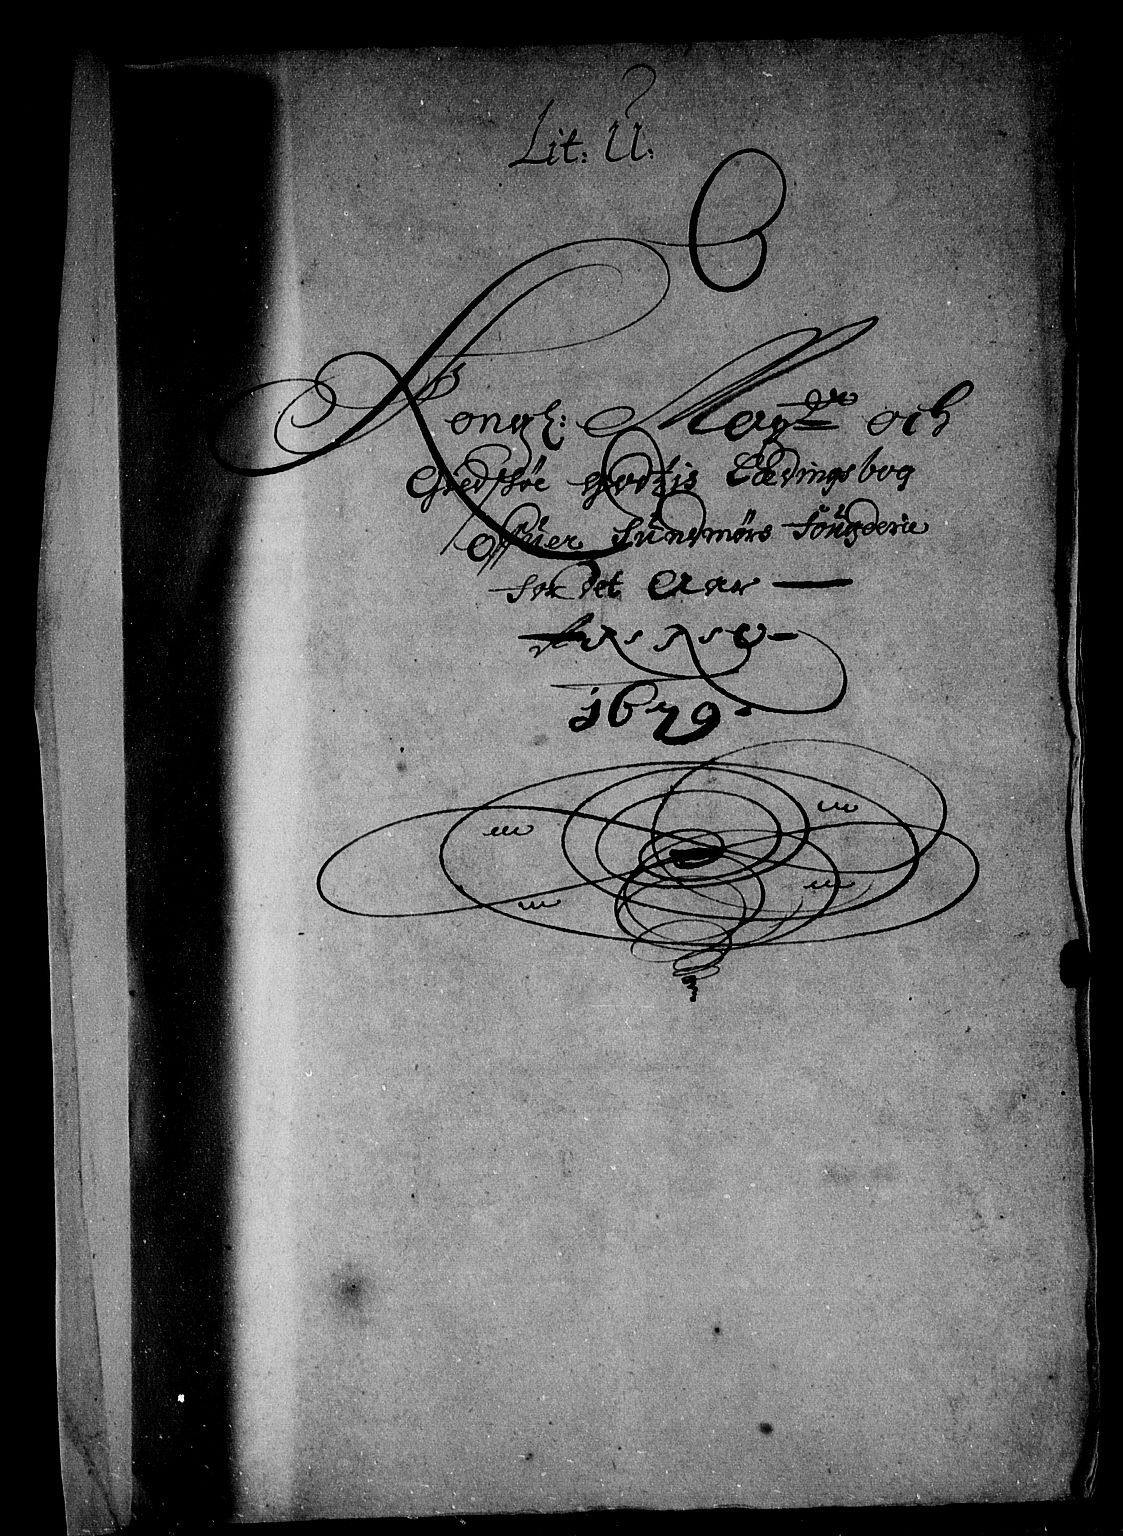 Lit: U.
Kongl: Maytz och
Giedsköe Godtzis Lædingsbog
Offuer Sundmørs fougderie
for det Aar
1679.